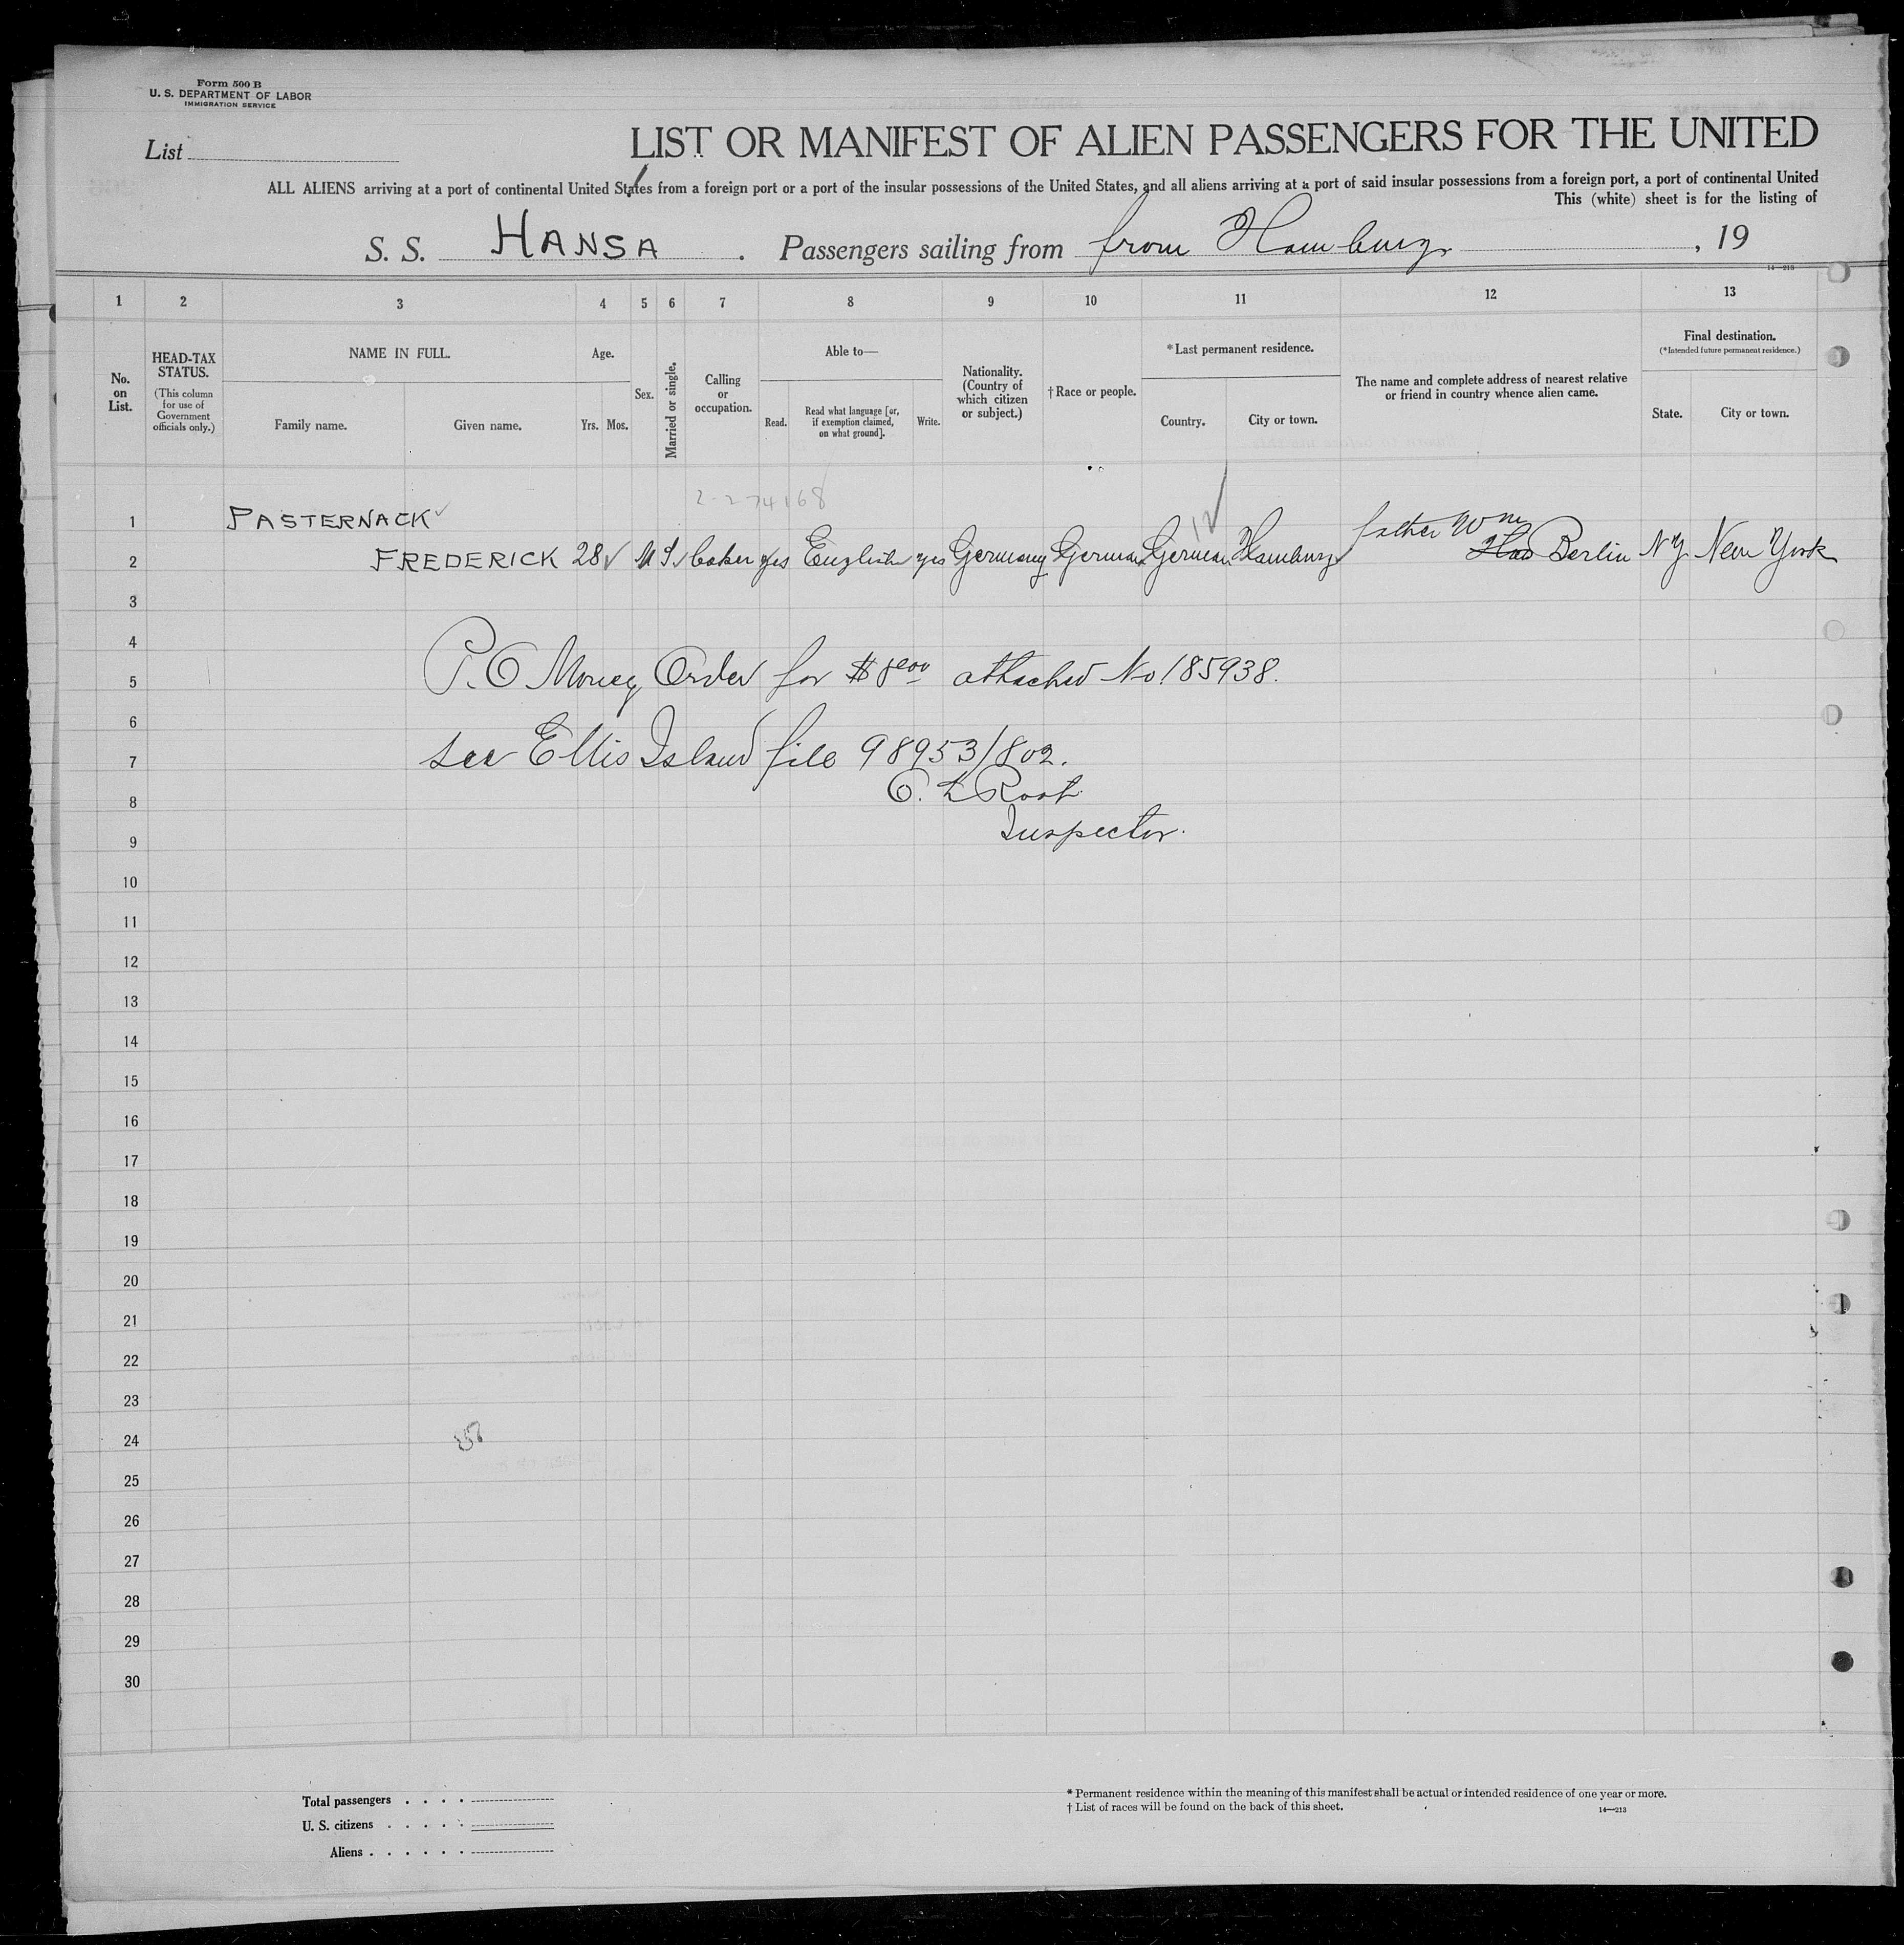 Form 500 B
U. S. DEPARTMENT OF LABOR
IMMIGRATION SERVICE
List
LIST OR MANIFEST OF ALIEN PASSENGERS FOR THE UNITED
ALL ALIENS arriving at a port of continental United States from a foreign port or a port of the insular possessions of the United States, and all aliens arriving at a port of said insular possessions from a foreign port, a port of continental United
This (white) sheet is for the listing of
S. S. HANSA . Passengers sailing from from Hamburg , 19
14—213
1 2 3 4 5 6 7 8 9 10 11 12 13
No. on List.
HEAD-TAX STATUS.
(This column for use of Government officials only.)
NAME IN FULL.
Family name. Given name.
Age.
Yrs. Mos.
Sex.
Married or single.
Calling or occupation.
Able to—
Read. Read what language [or, if exemption claimed, on what ground]. Write.
Nationality. (Country of which citizen or subject.)
† Race or people.
* Last permanent residence.
Country. City or town.
The name and complete address of nearest relative or friend in country whence alien came.
Final destination.
(* Intended future permanent residence.)
State. City or town.
2-274168
12
1 PASTERNACK father Wm
2 FREDERICK 28 M S yes English yes Germany German German Hamburg Berlin NY New York
3
4
5 P.O Money Order for $8 attached No 185938.
6
7 see Ellis Island file 98953/802.
8 Root
9 Inspector.
10
11
12
13
14
15
16
17
18
19
20
21
22
23
24
25
26
27
28
29
30
Total passengers . . . .
U. S. citizens . . . . .
Aliens . . . . . .
* Permanent residence within the meaning of this manifest shall be actual or intended residence of one year or more.
† List of races will be found on the back of this sheet.
14—213